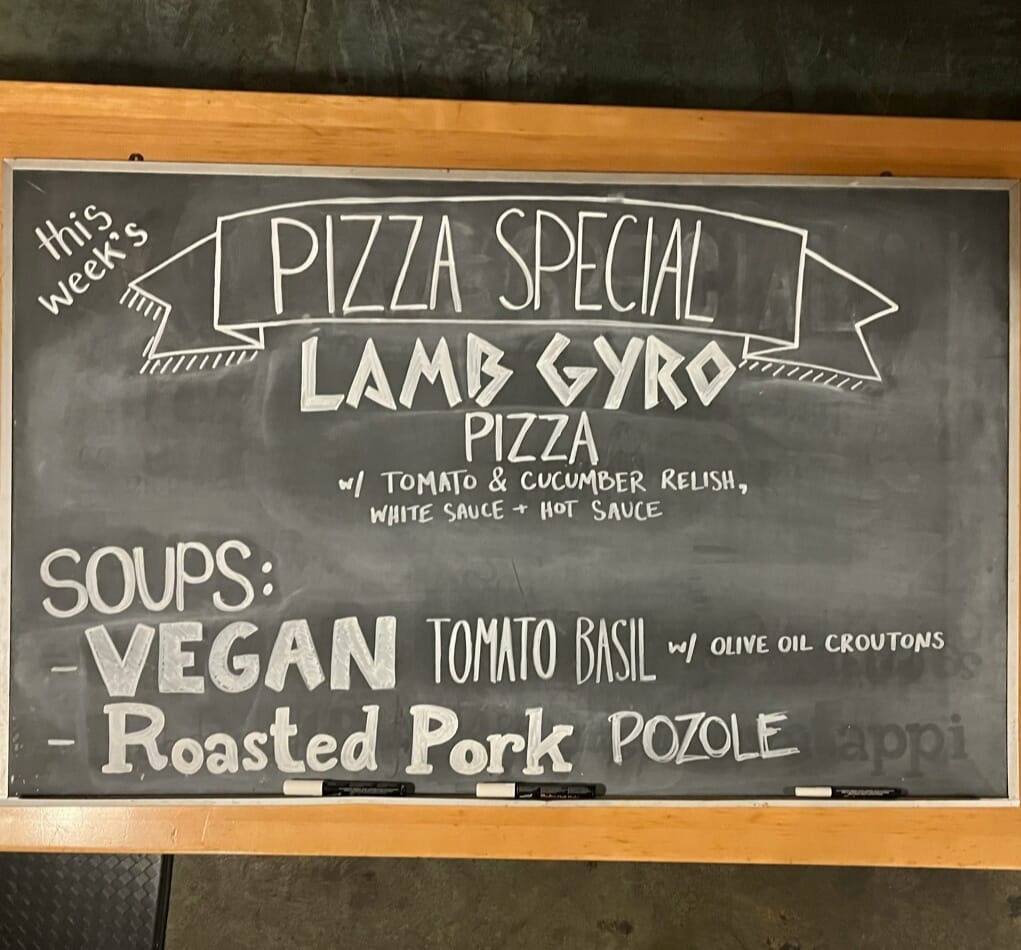 this
week's
PIZZA SPECIAL
LAMB GYRO
PIZZA
w/ TOMATO & CUCUMBER RELISH,
WHITE SAUCE + HOT SAUCE
SOUPS:
- VEGAN TOMATO BASIL w/ OLIVE OIL CROUTONS
- Roasted Pork POZOLE
appi